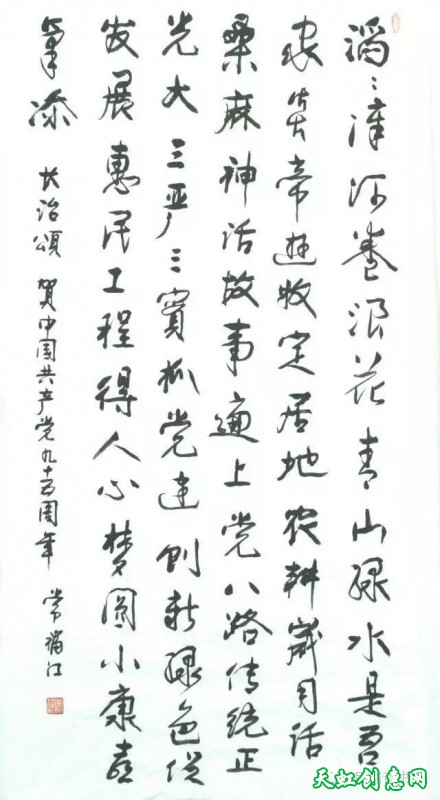 滔〻漳河卷浪花青山绿水是吾
家炎帝游牧定居地农耕岁月话
桑麻神话故事遍上党八路传统正
光大三严三实抓党建创新绿色促
发展惠民工程得人心梦圆小康喜
事添
长治颂 贺中国共产党九十五周年 常江
天虹创意网